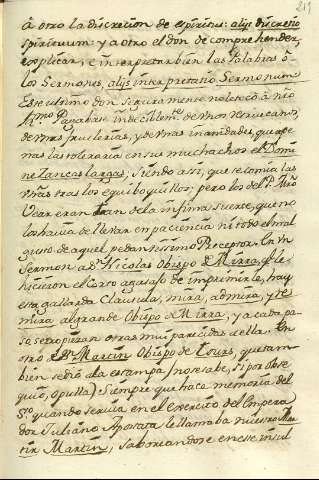 219
à otro la discrecion de espiritus: alijs discretio
spirituum: y a otro el don de comprehender,
explicar, è interpretar bien las Palabras ò
los Sermones, alijs interpretatio Sermonum
Este ultimo don seguramente no le tocò à nro
Pagabase indeciblemte de unos
de unas fruslerias, y de unas inanidades, que ape
nas las toleraria en sus muchachos el Domi
ne Zancas largas; siendo assi, que se comia las
uñas tras los equiboquillos; pero los del Pe. Mro
eran tan de la infima suerte, que no
los havia de llevar en paciencia ni todo el mal
gusto de aquel pedantissimo Preceptor. En un
Sermon a Sn. Nicolas Obispo de Mirra, q le
hicieron el corto agasajo de imprimirle, hay
esta gallarda Clausula, mira, admira, y re
mira al grande Obispo de Mirra; y a cada pa
so se tropiezan otras mui parecidas a ella. En
otro de Sn. Martin Obispo de Tours, que tam
bien se diò a la estampa (no se sabe, si por obse
quio, o pulla) Siempre que hace memoria del
Sto. quando servia en el exercito del Empera
dor Juliano Apostata le llamaba nuestro Mar
tir Martin, saboreandose en este insul